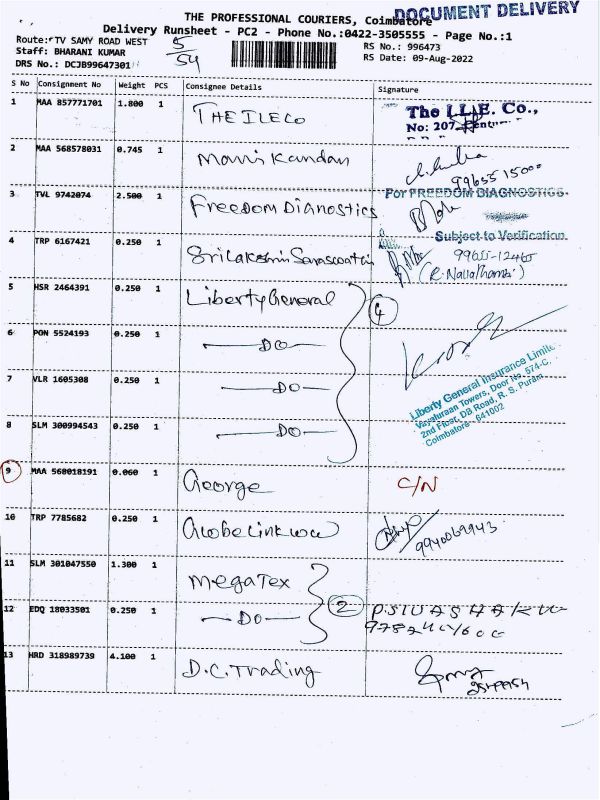 DOCUMENT DELIVERY
THE PROFESSIONAL COURIERS, Coimbatore
Delivery Runsheet - PC2 - Phone No.:0422-3505555 - Page No.:1
Route: TV SAMY ROAD WEST
Staff: BHARANI KUMAR
DRS No.: DCJB99647301
5/54
RS No.: 996473
RS Date: 09-Aug-2022
S No Consignment No Weight PCS Consignee Details Signature
1 MAA 857771701 1.800 1 THE ILECO
The I.L.E. Co.,
No: 207,
2 MAA 568578031 0.745 1 Manikandan
3 TVL 9742074 2.500 1 Freedom Dianostics
For FREEDOM DIAGNOSTICS
Subject to Verification
4 TRP 6167421 0.250 1 Sri Lakshmi Saraswathi
99655-12465
5 HSR 2464391 0.250 1 Liberty General
4
6 PON 5524193 0.250 1 DO
7 VLR 1605308 0.250 1 DO
8 SLM 300994543 0.250 1 DO
Liberty General Insurance Limite
Vijayaraan Towers, Door No. 574-C,
2nd Floor, DB Road, R. S. Puram
Coimbatore - 641002
9 MAA 568018191 0.060 1 George C/N
10 TRP 7785682 0.250 1 Globe Link
9940069943
11 SLM 301047550 1.300 1 Mega Tex
12 EDQ 18033501 0.250 1 DO
2
13 HRD 318989739 4.100 1 D.C. Trading